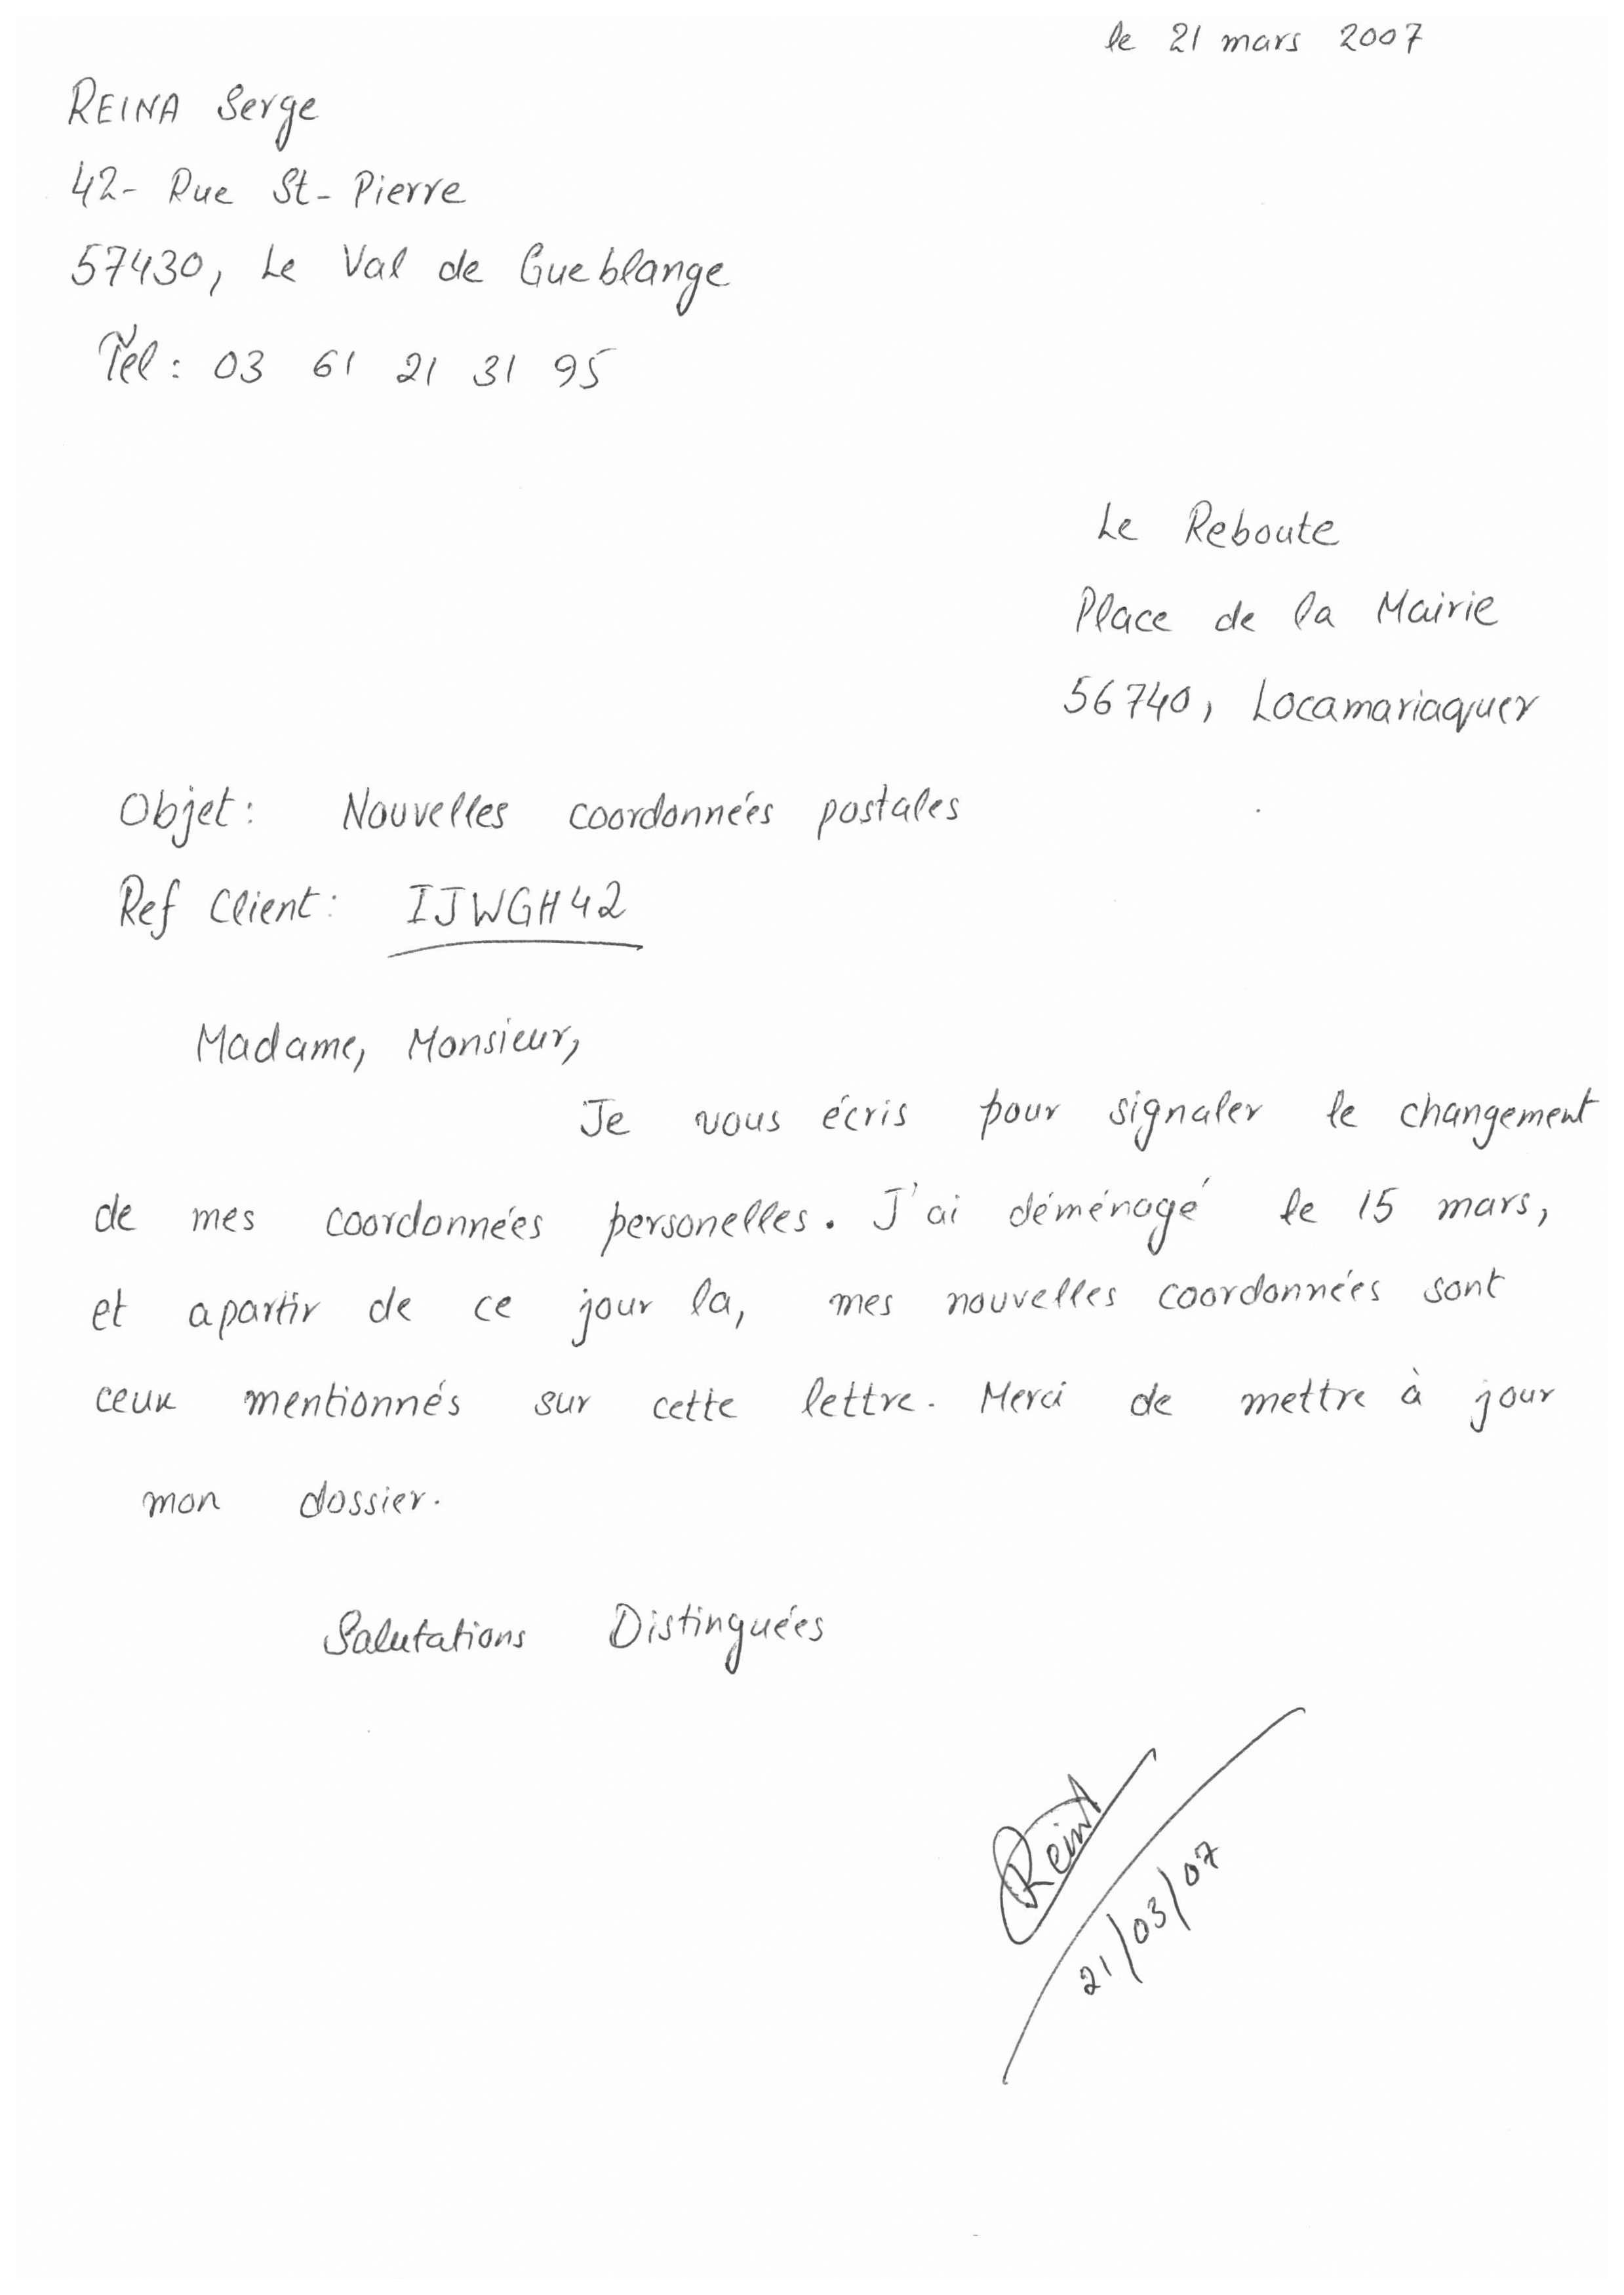 le 21 mars 2007
REINA Serge
42- Rue St-Pierre
57430, Le Val de Gueblange
Tél : 03 61 21 31 95
Le Reboute
Place de la Mairie
56740, Locamariaquer
Objet : Nouvelles coordonnées postales
Ref Client : IJWGH42
Madame, Monsieur,
Je vous écris pour signaler le changement
de mes coordonnées personelles. J'ai déménagé le 15 mars,
et apartir de ce jour la, mes nouvelles coordonnées sont
ceux mentionnés sur cette lettre. Merci de mettre à jour
mon dossier.
Salutations Distinguées
ReinA
21/03/07